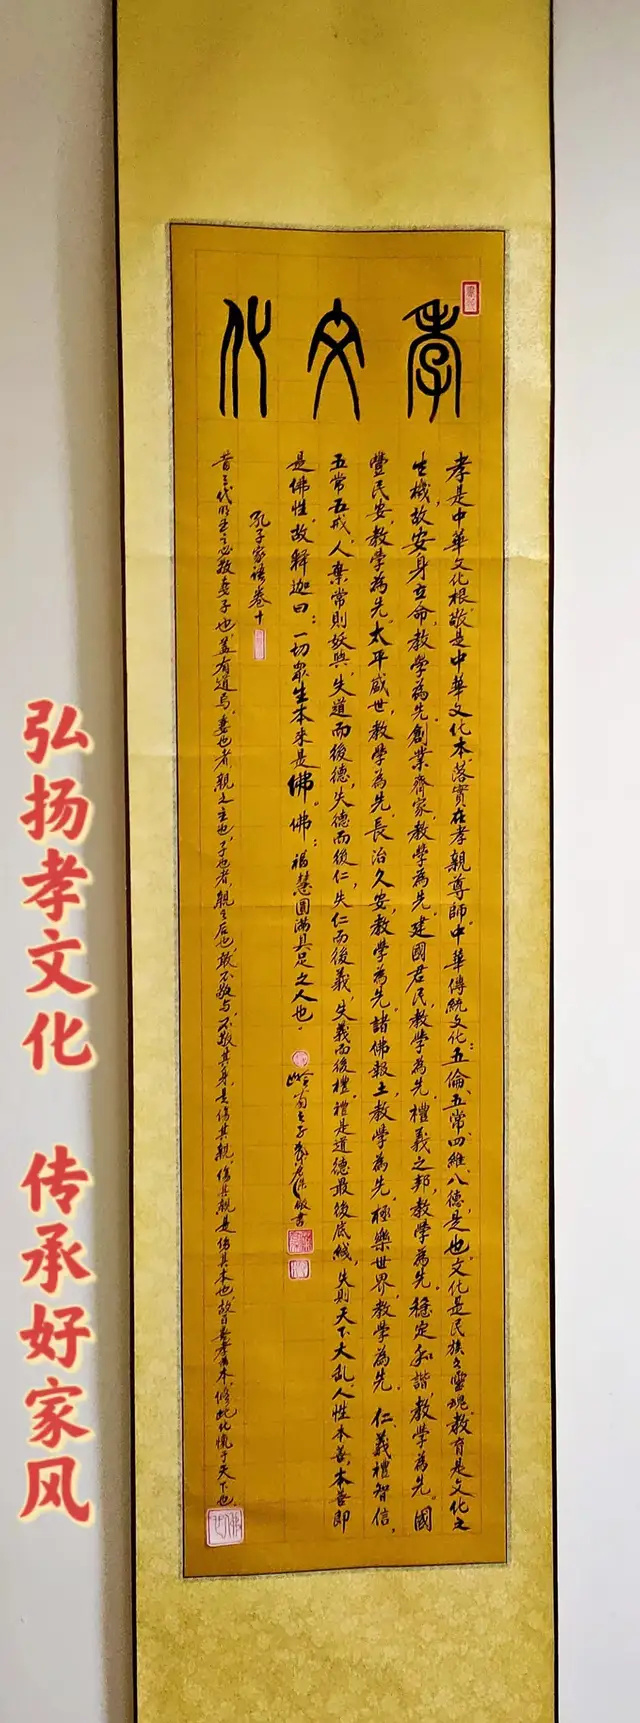 孝文化
孝是中華文化根，敬是中華文化本，落實在孝親尊師。中華傳統文化：五倫、五常、四維、八德，是也。文化是民族之靈魂，教育是文化之
生機，故安身立命，教學為先。創業齊家，教學為先。建國君民，教學為先。禮義之邦，教學為先。穩定和諧，教學為先。國
豐民安，教學為先。太平盛世，教學為先。長治久安，教學為先。諸佛報土，教學為先。極樂世界，教學為先。仁、義、禮、智、信，
五常五戒，人棄常則妖興，失道而後德，失德而後仁，失仁而後義，失義而後禮。禮是道德最後底綫，失則天下大乱。人性本善，本善即
是佛性。故釋迦曰：一切眾生本來是佛。佛：福慧圓滿具足之人也。
孔子家語卷十
昔三代明王之必敬妻子也，蓋有道焉。妻也者，親之主也，子也者，親之后也，敢不敬与，不敬其身，是伤其親，伤其親，是伤其本也，修此化愾于天下也
弘扬孝文化 传承好家风